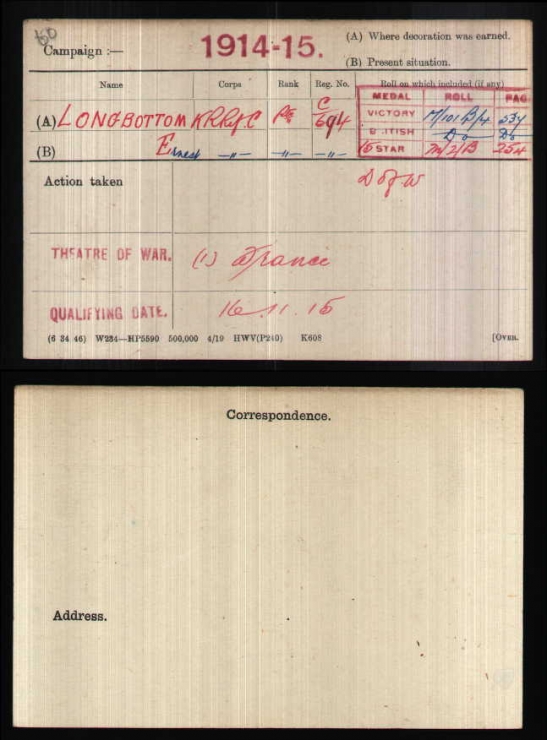 Campaign :— 1914-15. (A) Where decoration was earned.
(B) Present situation.
Name Corps Rank Reg. No. Roll on which included (if any)
MEDAL ROLL PAG
(A) LONGBOTTOM KRRifC Pte C/694 VICTORY
(B) Ernest —„— —„— —„— B ITISH Do Do
15 STAR
Action taken D of W
THEATRE OF WAR. (1) France
QUALIFYING DATE. 16.11.15
(6 34 46) W234—HP5590 500,000 4/19 HWV(P240) K608 [OVER.
Correspondence.
Address.